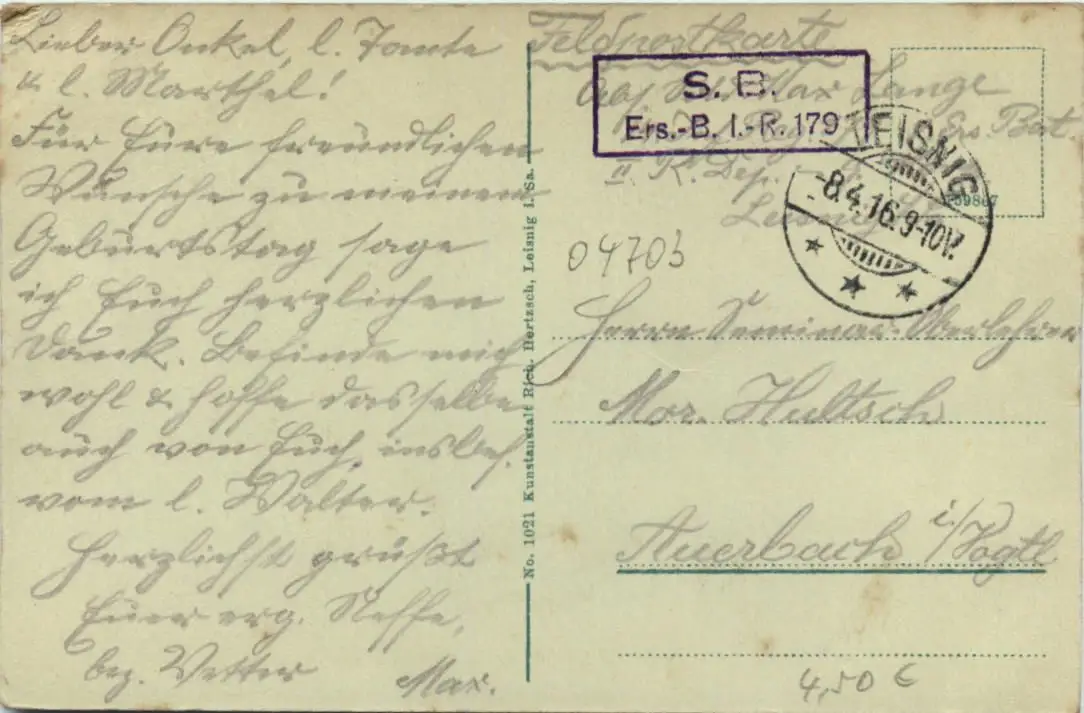 Lieber Onkel, l. Tante
& l. Marthel!
Für Eure freundlichen
Wünsche zu meinem
Geburtstag sage
ich Euch herzlichen
Dank. Befinde mich
wohl & hoffe dasselbe
auch von Euch, insbes.
vom l. Walter.
Herzlichst grüßt
Euer erg. Neffe,
bez. Vetter
Max.
No. 1021 Kunstanstalt Rich. Hertzsch, Leisnig i. Sa.
Feldpostkarte
Abs. Max Lange
Ers. Bat.
II. R. Dep.
Leisnig
S. B.
Ers.-B. I.-R. 179
LEISNIG
-8.4.16.9-10V.
04703
Herrn Seminar-Oberlehrer
Mor. Hultsch
Auerbach i/Vogtl
4,50 €